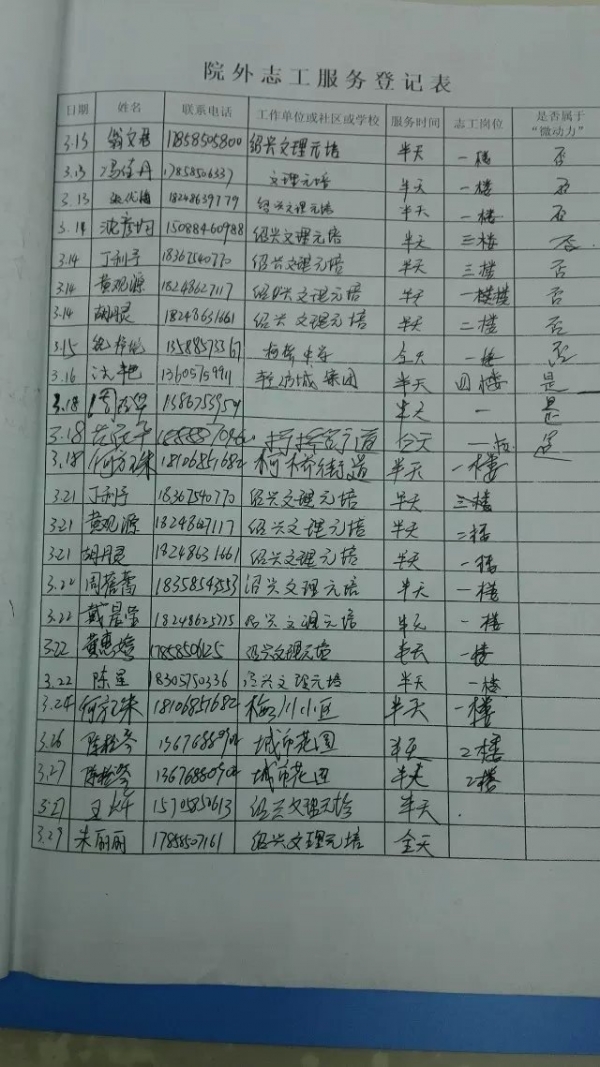 院外志工服务登记表
日期 姓名 联系电话 工作单位或社区或学校 服务时间 志工岗位 是否属于“微动力”
3.13 翁文君 17858505800 绍兴文理元培 半天 一楼 否
3.13 冯佳丹 17858506337 文理元培 半天 一楼 否
3.13 18248639779 绍兴文理元培 半天 一楼 否
3.14 沈彦均 15088460988 绍兴文理元培 半天 三楼 否
3.14 丁利子 18367540770 绍兴文理元培 半天 三楼 否
3.14 黄观源 18248627117 绍兴文理元培 半天 一楼 否
3.14 胡丹灵 18248631661 绍兴文理元培 半天 二楼 否
3.15 13588573367 柯桥中学 全天 一楼 否
3.16 沈艳 13605759911 轻纺城集团 半天 四楼 是
3.18 半天 一 是
3.18 全天 是
3.18 何方珠 18106851682 柯桥街道 半天 一楼
3.21 丁利子 18367540770 绍兴文理元培 半天 三楼
3.21 黄观源 18248627117 绍兴文理元培 半天 二楼
3.21 胡丹灵 18248631661 绍兴文理元培 半天 一楼
3.22 周蓓蕾 18358543553 绍兴文理元培 半天 一楼
3.22 戴星莹 18248625775 绍兴文理元培 半天 一楼
3.22 黄惠婷 17858506125 绍兴文理元培 半天 一楼
3.22 陈星 18305750336 绍兴文理元培 半天 一楼
3.24 何方珠 18106851682 梅川小区 半天 一楼
3.26 城市花园 半天 2楼
3.27 13676880904 城市花园 半天 2楼
3.27 15705852613 绍兴文理元培 半天
3.29 朱丽丽 17858507161 绍兴文理元培 全天